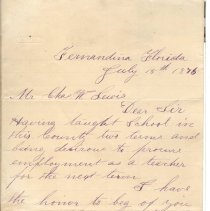 Fernandina Florida
July 18th 1886
Mr Chas W Lewis
Dear Sir
Having taught School in
this County two terms and
being desirous to procure
employment as a teacher
for the next term
I have
the honor to beg of you